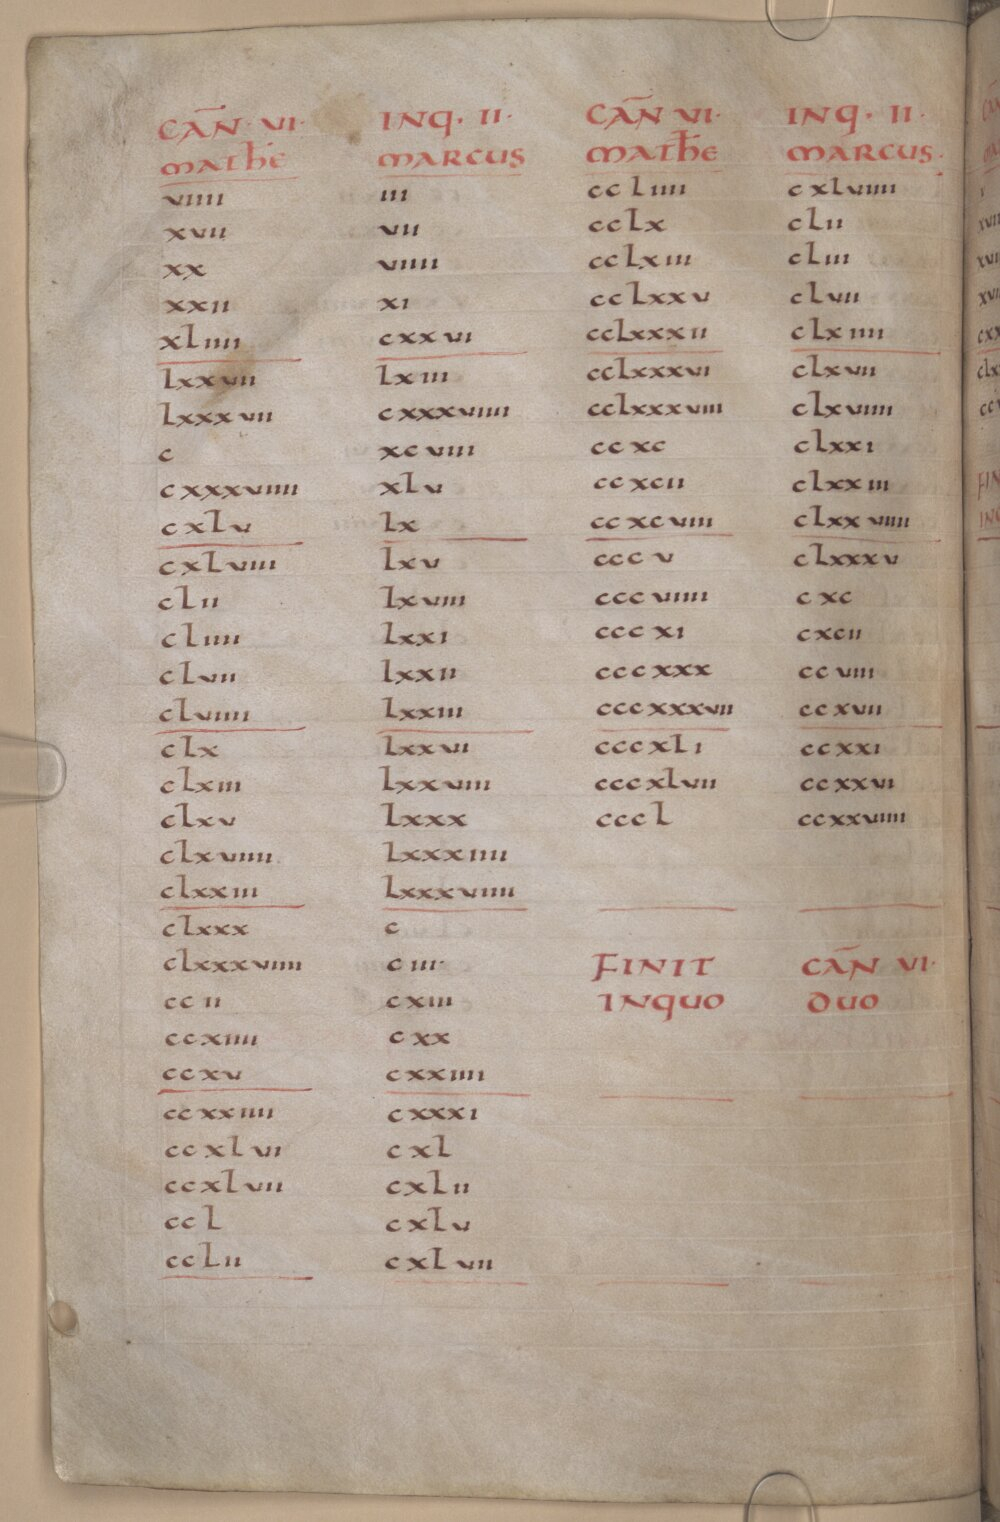 CAN̄ · VI · INQ · II · CAN̄ VI · INQ · II ·
MATHE MARCUS MATHE MARCUS ·
viiii iii ccliiii cxlviiii
xvii vii cclx clii
xx viiii cclxiii cliii
xxii xi cclxxv clvii
xliiii cxxvi cclxxxii clxiiii
lxxvii lxiii cclxxxvi clxvii
lxxxvii cxxxviiii cclxxxviiii clxviiii
c xcviii ccxc clxxi
cxxxviiii xlv ccxcii clxxiii
cxlv lx ccxcviii clxxviiii
cxlviii lxv cccv clxxxv
clii lxviii cccviiii cxc
cliiii lxxi cccxi cxcii
clvii lxxii cccxxx ccviii
clviiii lxxiii cccxxxvii ccxvii
clx lxxvii cccxli ccxxi
clxiii lxxviii cccxlvii ccxxvi
clxv lxxx cccl ccxxviiii
clxviiii lxxxiiii
clxxiii lxxxviiii
clxxx c
clxxxviiii ciii · FINIT CAN̄ VI ·
ccii cxiii INQUO DUO
ccxiiii cxx
ccxv cxxiiii
ccxxiiii cxxxi
ccxlvi cxl
ccxlvii cxlii
ccl cxlv
cclii cxlvii